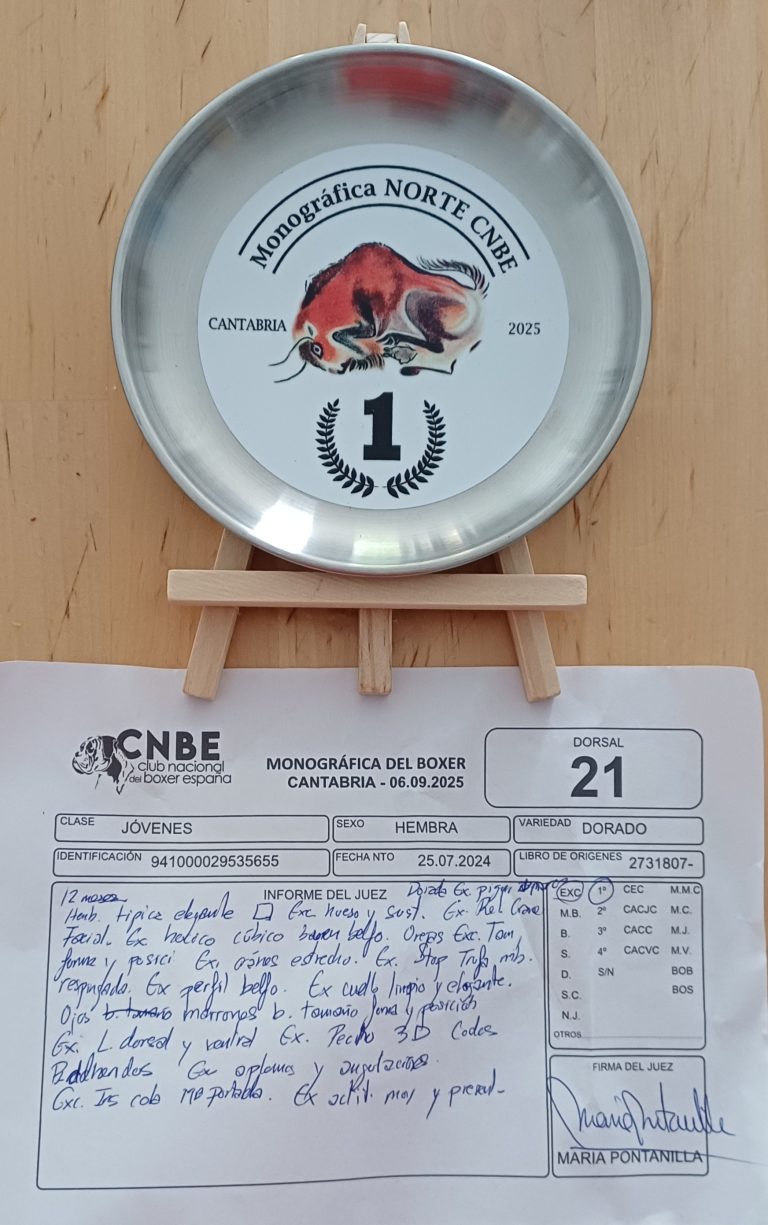 Monográfica NORTE CNBE
CANTABRIA 2025
1
CNBE
club nacional
del boxer españa
MONOGRÁFICA DEL BOXER
CANTABRIA - 06.09.2025
DORSAL
21
CLASE JÓVENES
SEXO HEMBRA
VARIEDAD DORADO
IDENTIFICACIÓN 941000029535655
FECHA NTO 25.07.2024
LIBRO DE ORIGENES 2731807-
INFORME DEL JUEZ
12 meses Dorada Ex.
Hemb. tipica elegante Exc hueso y sust. Ex. Rel. Crane
Facial. Ex hocico cúbico buen belfo. Orejas Exc. Tam
forma y posici Ex. craneo estrecho. Ex. Stop Trufa mb.
respingada. Ex perfil belfo. Ex cuello limpio y elegante.
Ojos marrones b. tamaño forma y posición
Ex. L. dorsal y ventral Ex. Pecho 3D Codos
Ex aplomos y angulaciones.
Exc. Ins cola MB portada. Ex actit. mov y present-
EXC 1º CEC M.M.C
M.B. 2º CACJC M.C.
B. 3º CACC M.J.
S. 4º CACVC M.V.
D. S/N BOB
S.C. BOS
N.J.
OTROS
FIRMA DEL JUEZ
MARIA PONTANILLA